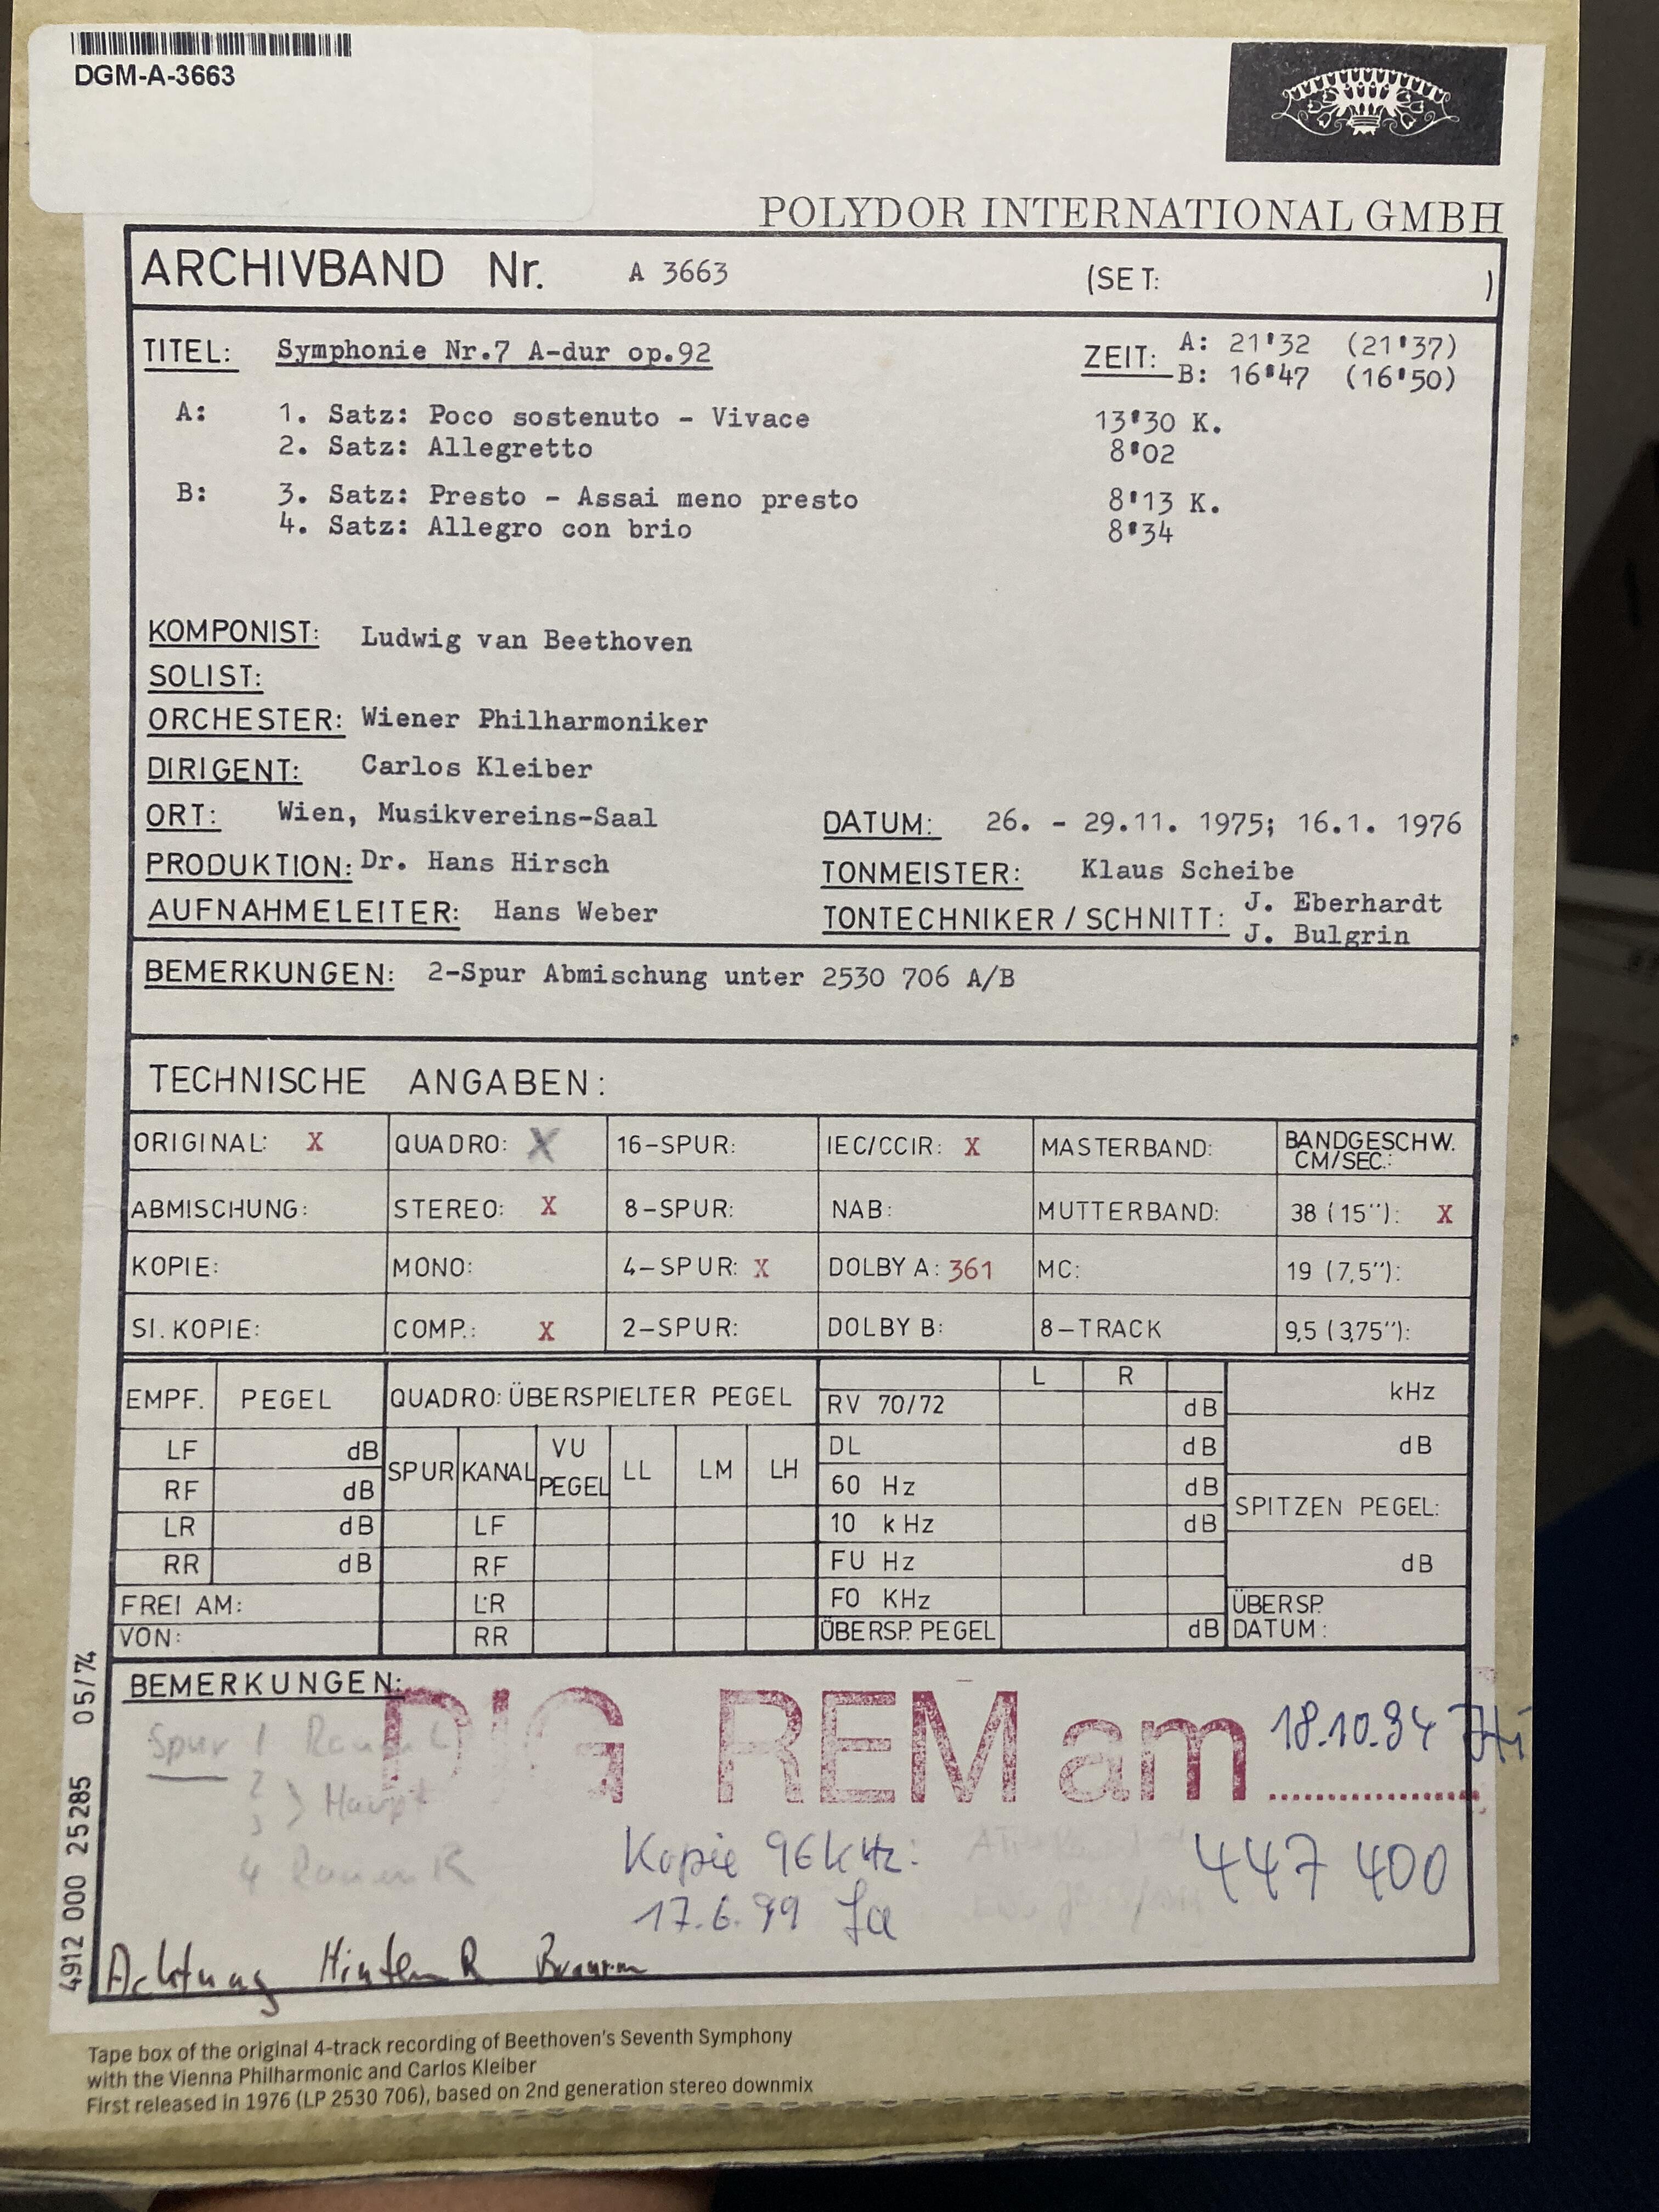 DGM-A-3663
POLYDOR INTERNATIONAL GMBH
ARCHIVBAND Nr. A 3663 (SET: )
TITEL: Symphonie Nr.7 A-dur op.92 ZEIT: A: 21'32 (21'37)
B: 16'47 (16'50)
A: 1. Satz: Poco sostenuto - Vivace 13'30 K.
2. Satz: Allegretto 8'02
B: 3. Satz: Presto - Assai meno presto 8'13 K.
4. Satz: Allegro con brio 8'34
KOMPONIST: Ludwig van Beethoven
SOLIST:
ORCHESTER: Wiener Philharmoniker
DIRIGENT: Carlos Kleiber
ORT: Wien, Musikvereins-Saal DATUM: 26. - 29.11. 1975; 16.1. 1976
PRODUKTION: Dr. Hans Hirsch TONMEISTER: Klaus Scheibe
AUFNAHMELEITER: Hans Weber TONTECHNIKER / SCHNITT: J. Eberhardt
J. Bulgrin
BEMERKUNGEN: 2-Spur Abmischung unter 2530 706 A/B
TECHNISCHE ANGABEN:
ORIGINAL: X QUADRO: X 16-SPUR: IEC/CCIR: X MASTERBAND: BANDGESCHW. CM/SEC.:
ABMISCHUNG: STEREO: X 8-SPUR: NAB: MUTTERBAND: 38 (15"): X
KOPIE: MONO: 4-SPUR: X DOLBY A: 361 MC: 19 (7,5"):
SI. KOPIE: COMP.: X 2-SPUR: DOLBY B: 8-TRACK 9,5 (3,75"):
EMPF. PEGEL QUADRO: ÜBERSPIELTER PEGEL L R kHz
RV 70/72 dB
LF dB SPUR KANAL VU PEGEL LL LM LH DL dB dB
RF dB 60 Hz dB SPITZEN PEGEL:
LR dB LF 10 kHz dB
RR dB RF FU Hz dB
FREI AM: LR FO KHz ÜBERSP. DATUM:
VON: RR ÜBERSP. PEGEL dB
BEMERKUNGEN:
DIG REM am 18.10.94
Spur 1 Raum L
2
3 } Haupt
4 Raum R
Kopie 96kHz: 447 400
17.6.99
Achtung Hinten R
4912 000 25285 05/74
Tape box of the original 4-track recording of Beethoven's Seventh Symphony
with the Vienna Philharmonic and Carlos Kleiber
First released in 1976 (LP 2530 706), based on 2nd generation stereo downmix